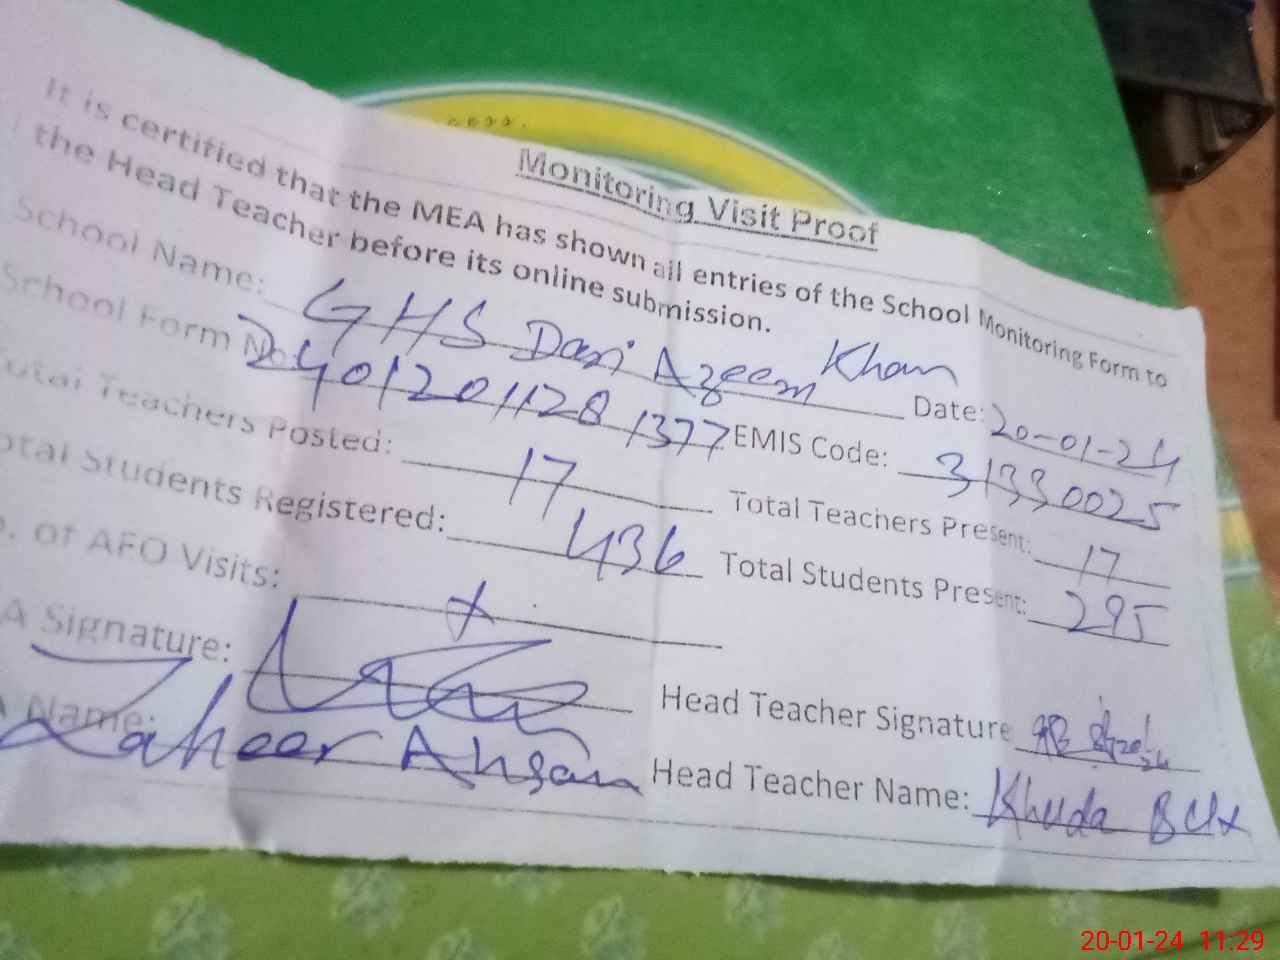 Monitoring Visit Proof
It is certified that the MEA has shown all entries of the School Monitoring Form to
the Head Teacher before its online submission.
School Name: GHS Dari Azeem Khan Date: 20-01-24
School Form No 24012011281377 EMIS Code: 31330025
Total Teachers Posted: 17 Total Teachers Present: 17
otal Students Registered: 436 Total Students Present: 295
. of AFO Visits: x
A Signature: Head Teacher Signature
Name: Zaheer Ahsan Head Teacher Name: Khuda Bux
20-01-24 11:29